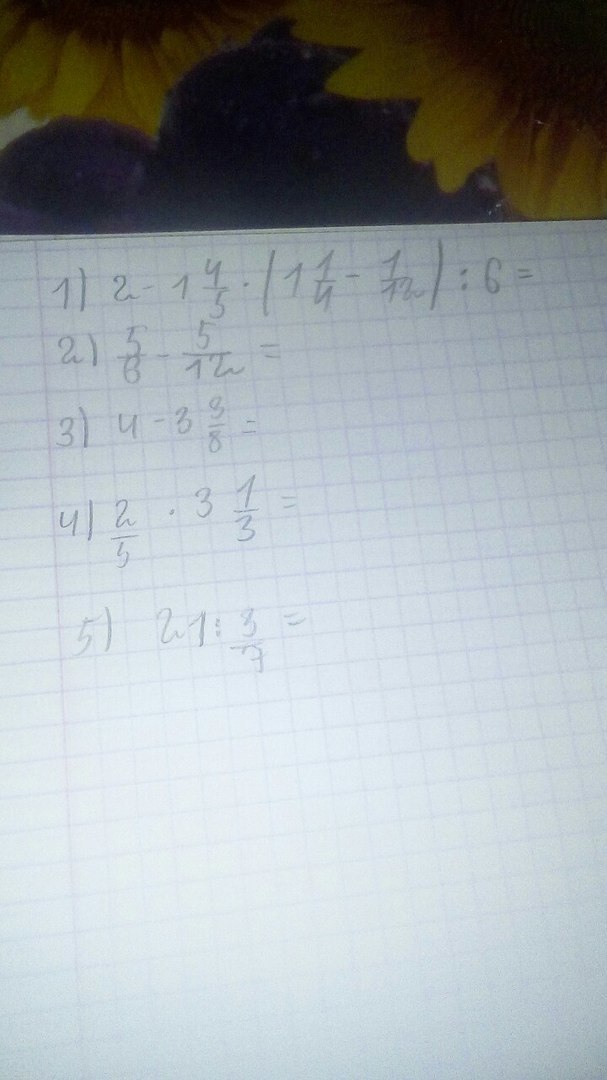 1) 2 - 1 4/5 · (1 1/4 - 1/12) : 6 =
2) 5/6 - 5/12 =
3) 4 - 3 3/8 =
4) 2/5 · 3 1/3 =
5) 21 : 3/7 =